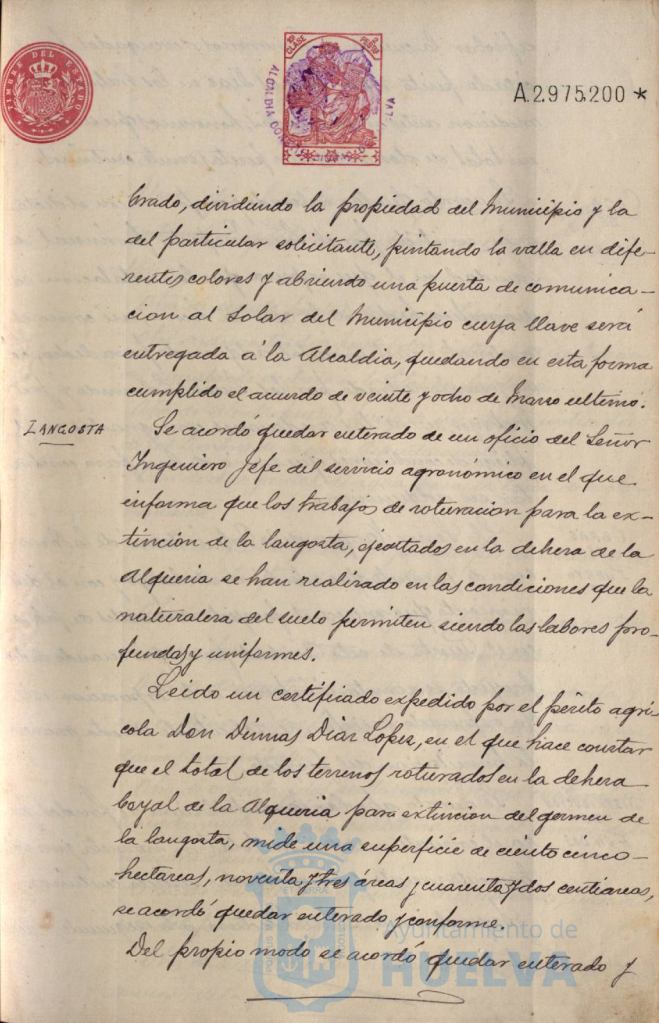 TIMBRE DEL ESTADO
10ª CLASE
2 PESETAS
ALCALDIA
A.2.975.200 *
brado, dividiendo la propiedad del Municipio y la
del particular solicitante, pintando la valla en dife-
rentes colores y abriendo una puerta de comunica-
cion al Solar del Municipio cuya llave será
entregada á la Alcaldia, quedando en esta forma
cumplido el acuerdo de veinte y ocho de Marzo ultimo.
LANGOSTA
Se acordó quedar enterado de un oficio del Señor
Ingeniero Jefe del servicio agronómico en el que
informa que los trabajos de roturacion para la ex-
tincion de la langosta, ejecutados en la dehera de la
Alqueria se han realizado en las condiciones que la
naturalera del suelo permiten siendo las labores pro-
fundas y uniformes.
Leido un certificado expedido por el périto agrí-
cola Don Dimas Diaz Lopez, en el que hace constar
que el total de los terrenos roturados en la dehera
boyal de la Alqueria para extincion del germen de
la langosta, mide una superficie de ciento cinco-
hectareas, noventa y tres áreas y cuarenta y dos centiareas,
se acordó quedar enterado y conforme.
Del propio modo se acordó quedar enterado y
Ayuntamiento de
HUELVA